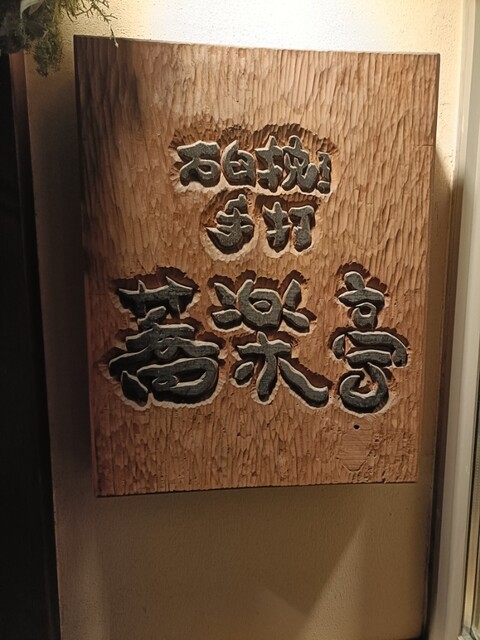 石臼挽
手打
蕎楽亭